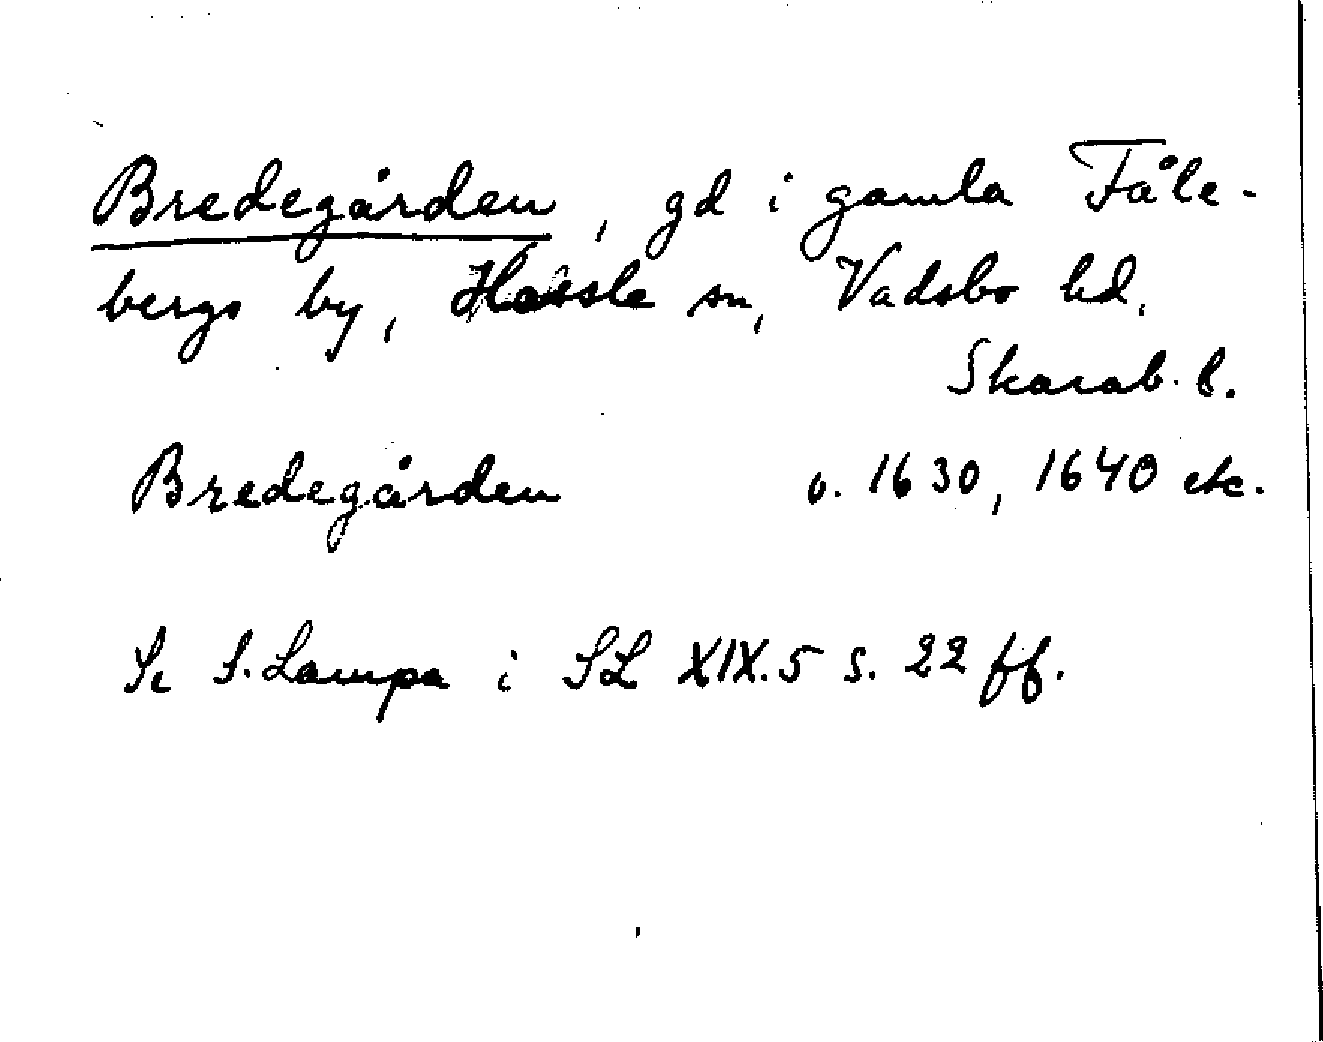 Bredegården, gd i gamla Fåle-
bergs by, Hassle sn, Vadsbo hd,
Skarab. l.
Bredegården o. 1630, 1640 etc.
Se S. Lampa i SL XIX.5 s. 22 ff.